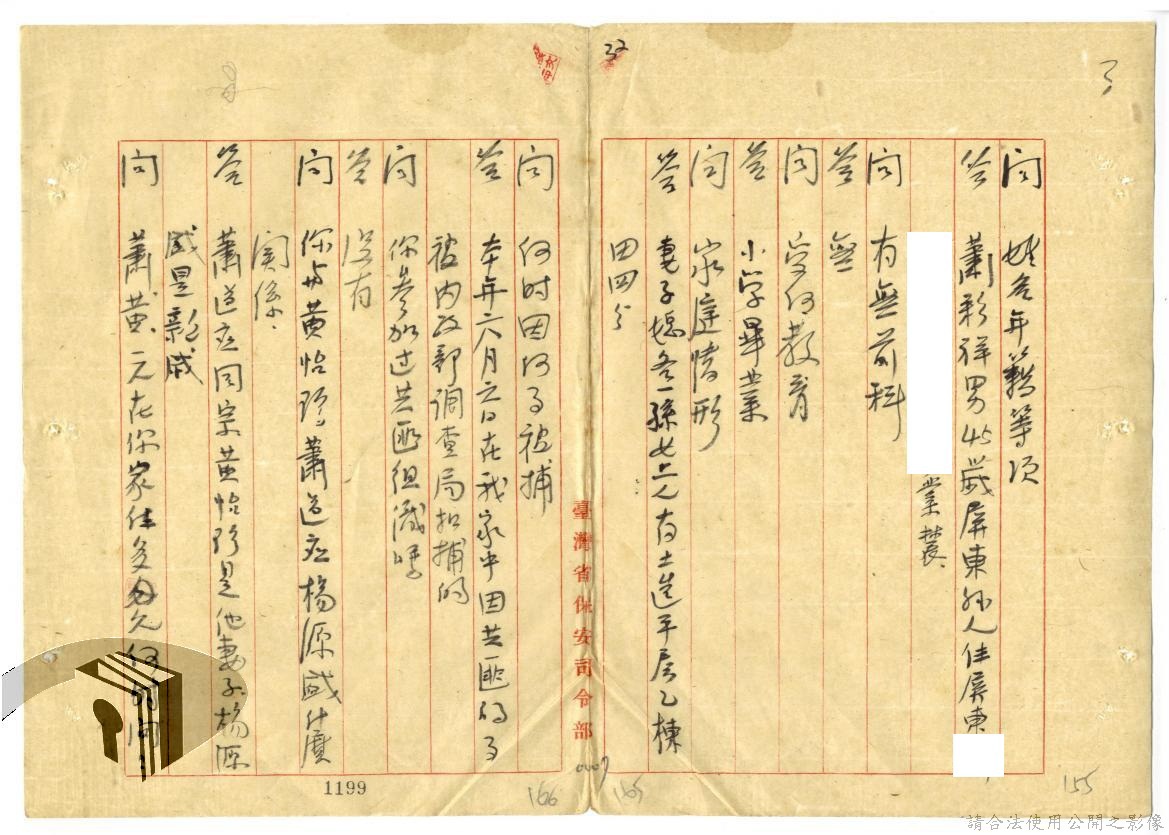 問 姓名年籍等項
答 蕭彩祥男45歲屏東縣人住屏東
業農
問 有無前科
答 無
問 受何教育
答 小学畢業
問 家庭情形
答 妻子媳各一孫七上人有土造平房乙棟
田四分
臺灣省保安司令部
問 何时因何事被捕
答 本年六月六日在我家中因共匪的事
被内政部調查局扣捕的
問 你參加过共匪组織嗎
答 没有
問 你與黄怡珍蕭道应楊源盛什麼
関係
答 蕭道应同宗黄怡珍是他妻子楊源
盛是親戚
問 蕭黄二元在你家住多久何的问
32
1199
166
165
155
0007
請合法使用公開之影像